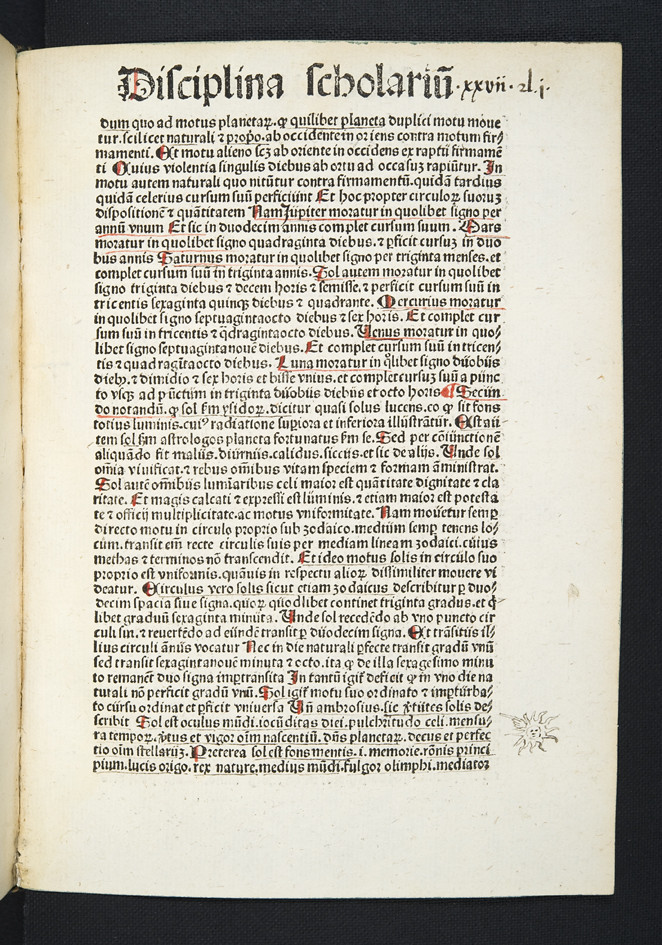 Disciplina scholariū · xxvii ·
dum quo ad motus planetaꝝ. ꝙ quilibet planeta duplici motu moue
tur. scilicet naturali ⁊ prop̄o. ab occidente in oriens contra motum fir⸗
mamenti. Et motu alieno scꝫ ab oriente in occidens ex raptu firmamē
ti Cuius violentia singulis diebus ab ortu ad occasuꝫ rapiūtur. In
motu autem naturali quo nitūtur contra firmamentū. quidā tardius
quidā celerius cursum suū perficiūnt Et hoc propter circuloꝝ suoruꝫ
dispositionē ⁊ quātitatem Nam Jupiter moratur in quolibet signo per
annū vnum Et sic in duodecim annis complet cursum suum. Mars
moratur in quolibet signo quadraginta diebus. ⁊ ꝑficit cursuꝫ in duo
bus annis Saturnus moratur in quolibet signo per triginta menses. et
complet cursum suū in triginta annis. Sol autem moratur in quolibet
signo triginta diebus ⁊ decem horis ⁊ semisse. ⁊ perficit cursum suū in
tricentis sexaginta quinqꝫ diebus ⁊ quadrante. Mercurius moratur
in quolibet signo septuagintaocto diebus ⁊ sex horis. Et complet cur
sum suū in tricentis ⁊ q̄dragintaocto diebus. Venus moratur in quo⸗
libet signo septuagintanoue diebus. Et complet cursum suū in tricen⸗
tis ⁊ quadragītaocto diebus. Luna moratur in q̄libet signo duobus
diebꝰ. ⁊ dimidio ⁊ sex horis et bisse vnius. et complet cursuꝫ suū a punc
to vsqꝫ ad punctum in triginta duobus diebus et octo horis Secūn
do notandū. ꝙ sol ẜm ysidoꝝ. dicitur quasi solus lucens. eo ꝙ sit fons
totius luminis. cuiꝰ radiatione supiora et inferiora illustrātur. Est aū
tem sol ẜm astrologos planeta fortunatus ẜm se. Sed per cōiūnctionē
aliquādo fit maliuꝰ. diurniꝰ. calidus. siccus. et sic de alijs. Unde sol
om̄ia viuificat. ⁊ rebus om̄ibus vitam speciem ⁊ formam āministrat.
Sol autē om̄ibus luminaribus celi maior est quātitate dignitate ⁊ cla
ritate. Et magis calcati ⁊ expressi est luminis. ⁊ etiam maior est potesta
te ⁊ officij multiplicitate. ac motus vniformitate. Nam mouetur semꝑ
directo motu in circulo proprio sub zodaico. medium semꝑ tenens lo⸗
cum. transit em̄ recte circulis suis per mediam lineam zodaici. cuius
methas ⁊ terminos nō transcendit. Et ideo motus solis in circulo suo
proprio est vniformis. quāuis in respectu alioꝝ dissimiliter mouere vi
deatur. Circulus vero solis sicut etiam zodaicus describitur ꝑ duo⸗
decim spacia siue signa. quoꝝ quodlibet continet triginta gradus. et q̄
libet gradū sexaginta minuta. Unde sol recedēdo ab vno puncto cir
culi sui. ⁊ reuertēdo ad eundē transit ꝑ duodecim signa. Et trāsitus il⸗
lius circuli annūs vocatur Nec in die naturali ꝑfecte transit gradū vnū
sed transit sexagintanouē minuta ⁊ octo. ita ꝙ de illa sexagesimo minu
to remanēt duo signa imꝑtransita In tantū igit̄ deficit ꝙ in vno die na
turali nō perficit gradū vnū. Sol igit̄ motu suo ordinato ⁊ imꝑturba⸗
to cursu ordinat et ꝑficit vniuersa Uñ ambrosius. sic v̄tutes solis de⸗
scribit Sol est oculus mūdi. iocūditas diei. pulchritudo celi. mensu⸗
ra tempoꝝ. v̄tus et vigor oīm nascentiū. dn̄s planetaꝝ. decus et perfec
tio oīm stellaruꝫ. Preterea sol est fons mentis. i. memorie. rōnis princi
pium. lucis origo. rex nature. medius mūdi. fulgor olimphi. mediator